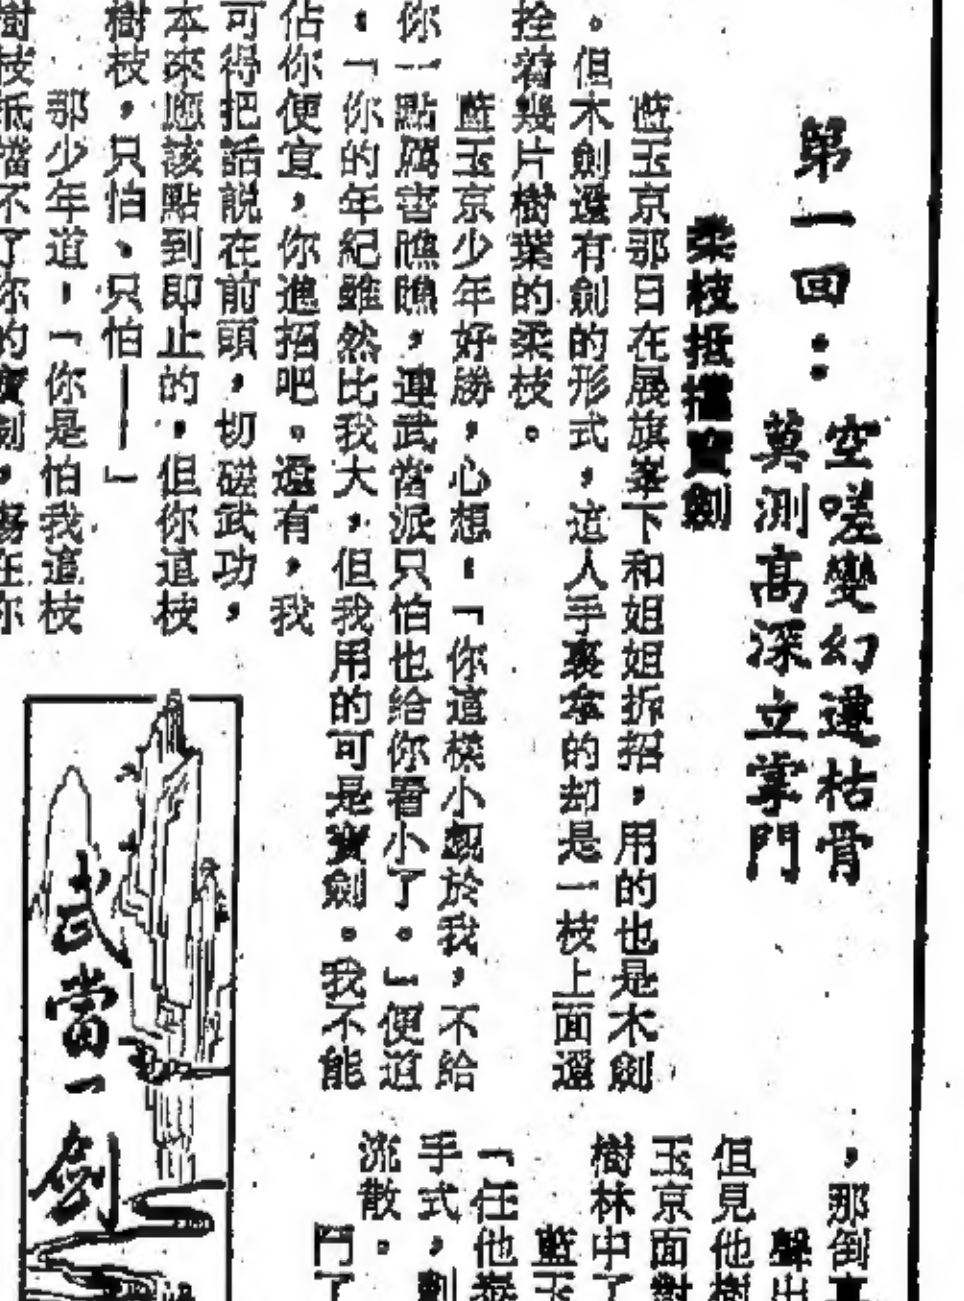 第一回：
空嗟變幻遭枯骨
莫測高深立掌門
柔枝抵擋寶劍
藍玉京那日在展旗峯下和姐姐拆招，用的也是木劍
。但木劍還有劍的形式，這人手裏拿的却是一枝上面還
拴着幾片樹葉的柔枝。
藍玉京少年好勝，心想：「你這樣小覷於我，不給
你一點厲害瞧瞧，連武當派只怕也給你看小了。」便道
：「你的年紀雖然比我大，但我用的可是寶劍。我不能
佔你便宜，你進招吧。還有，我
可得把話説在前頭，切磋武功，
本來應該點到即止的，但你這枝
樹枝，只怕、只怕——」
那少年道：「你是怕我這枝
樹枝抵擋不了你的寶劍，傷在你
武當一劍
，那倒
聲出
但見他樹
玉京面對
樹林中了
藍玉
「任他泰
手式，劃
流散。
鬥了